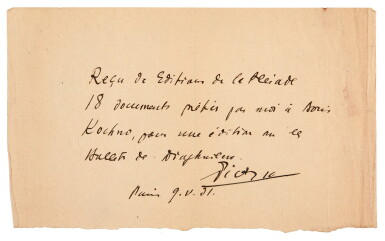 Reçu de Editions de la Pléiade
18 documents prêtés par moi à Boris
Kochno, pour une édition sur le
Ballets de Diaghilew
Picasso
Paris 9.V.51.